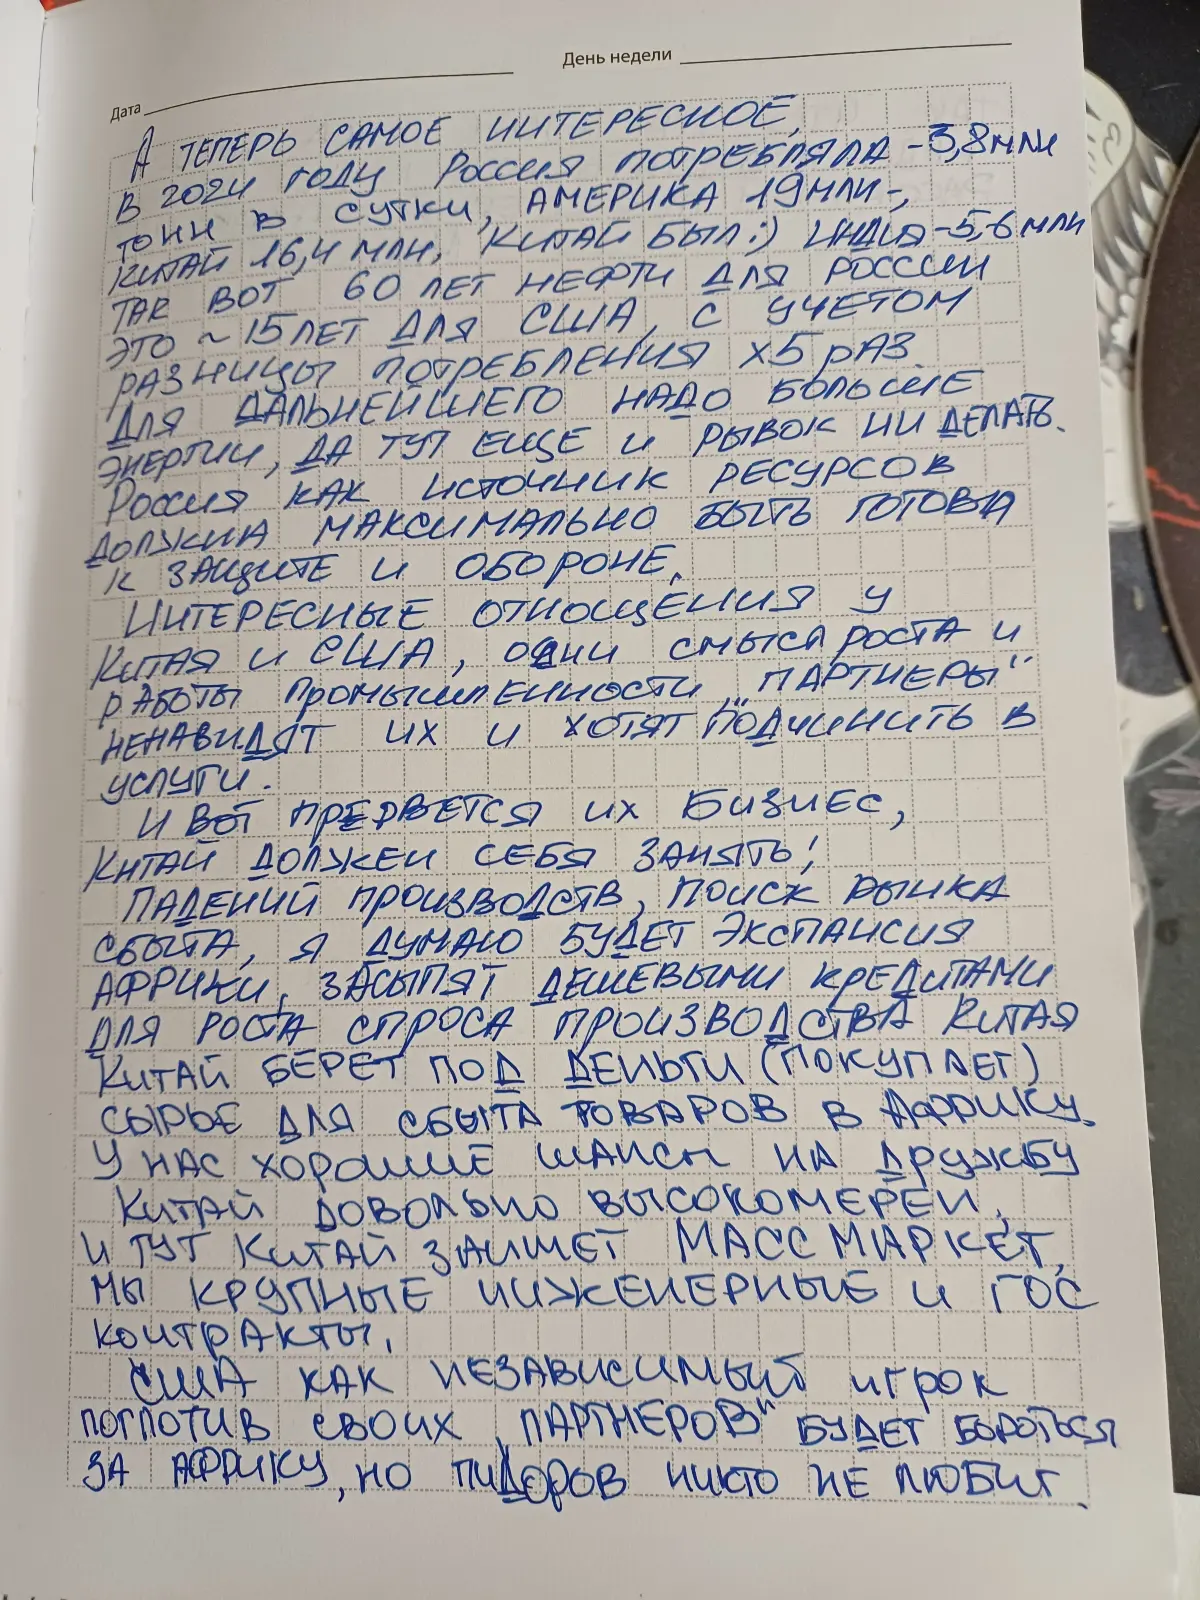 День недели
Дата
А ТЕПЕРЬ САМОЕ ИНТЕРЕСНОЕ,
В 2024 ГОДУ РОССИЯ ПОТРЕБЛЯЛА - 3,8 МЛН
ТОНН В СУТКИ, АМЕРИКА 19 МЛН-,
КИТАЙ 16,4 МЛН, КИТАЙ БЫЛ :) ИНДИЯ - 5,6 МЛН
ТАК ВОТ 60 ЛЕТ НЕФТИ ДЛЯ РОССИИ
ЭТО ~ 15 ЛЕТ ДЛЯ США, С УЧЕТОМ
РАЗНИЦЫ ПОТРЕБЛЕНИЯ Х5 РАЗ.
ДЛЯ ДАЛЬНЕЙШЕГО НАДО БОЛЬШЕ
ЭНЕРГИИ, ДА ТУТ ЕЩЕ И РЫВОК НИ ДЕЛАТЬ.
РОССИЯ КАК ИСТОЧНИК РЕСУРСОВ
ДОЛЖНА МАКСИМАЛЬНО БЫТЬ ГОТОВА
К ЗАЩИТЕ И ОБОРОНЕ.
ИНТЕРЕСНЫЕ ОТНОШЕНИЯ У
КИТАЯ И США, ОДНИ СМЫСЛ РОСТА И
РАБОТЫ ПРОМЫШЛЕННОСТИ „ПАРТНЕРЫ"
НЕНАВИДЯТ ИХ И ХОТЯТ ПОДЧИНИТЬ В
УСЛУГИ.
И ВОТ ПРЕРВЕТСЯ ИХ БИЗНЕС,
КИТАЙ ДОЛЖЕН СЕБЯ ЗАНЯТЬ!
ПАДЕНИЙ ПРОИЗВОДСТВ, ПОИСК РЫНКА
СБЫТА, Я ДУМАЮ БУДЕТ ЭКСПАНСИЯ
АФРИКИ, ЗАСЫПЯТ ДЕШЕВЫМИ КРЕДИТАМИ
ДЛЯ РОСТА СПРОСА ПРОИЗВОДСТВА КИТАЯ
КИТАЙ БЕРЕТ ПОД ДЕНЬГИ (ПОКУПАЕТ)
СЫРЬЕ ДЛЯ СБЫТА ТОВАРОВ В АФРИКУ.
У НАС ХОРОШИЕ ШАНСЫ НА ДРУЖБУ
КИТАЙ ДОВОЛЬНО ВЫСОКОМЕРЕН,
И ТУТ КИТАЙ ЗАЙМЕТ МАСС МАРКЕТ,
МЫ КРУПНЫЕ ИНЖЕНЕРНЫЕ И ГОС
КОНТРАКТЫ.
США КАК НЕЗАВИСИМЫЙ ИГРОК
ПОГЛОТИВ СВОИХ „ПАРТНЕРОВ" БУДЕТ БОРОТЬСЯ
ЗА АФРИКУ, НО ПИДОРОВ НИКТО НЕ ЛЮБИТ.